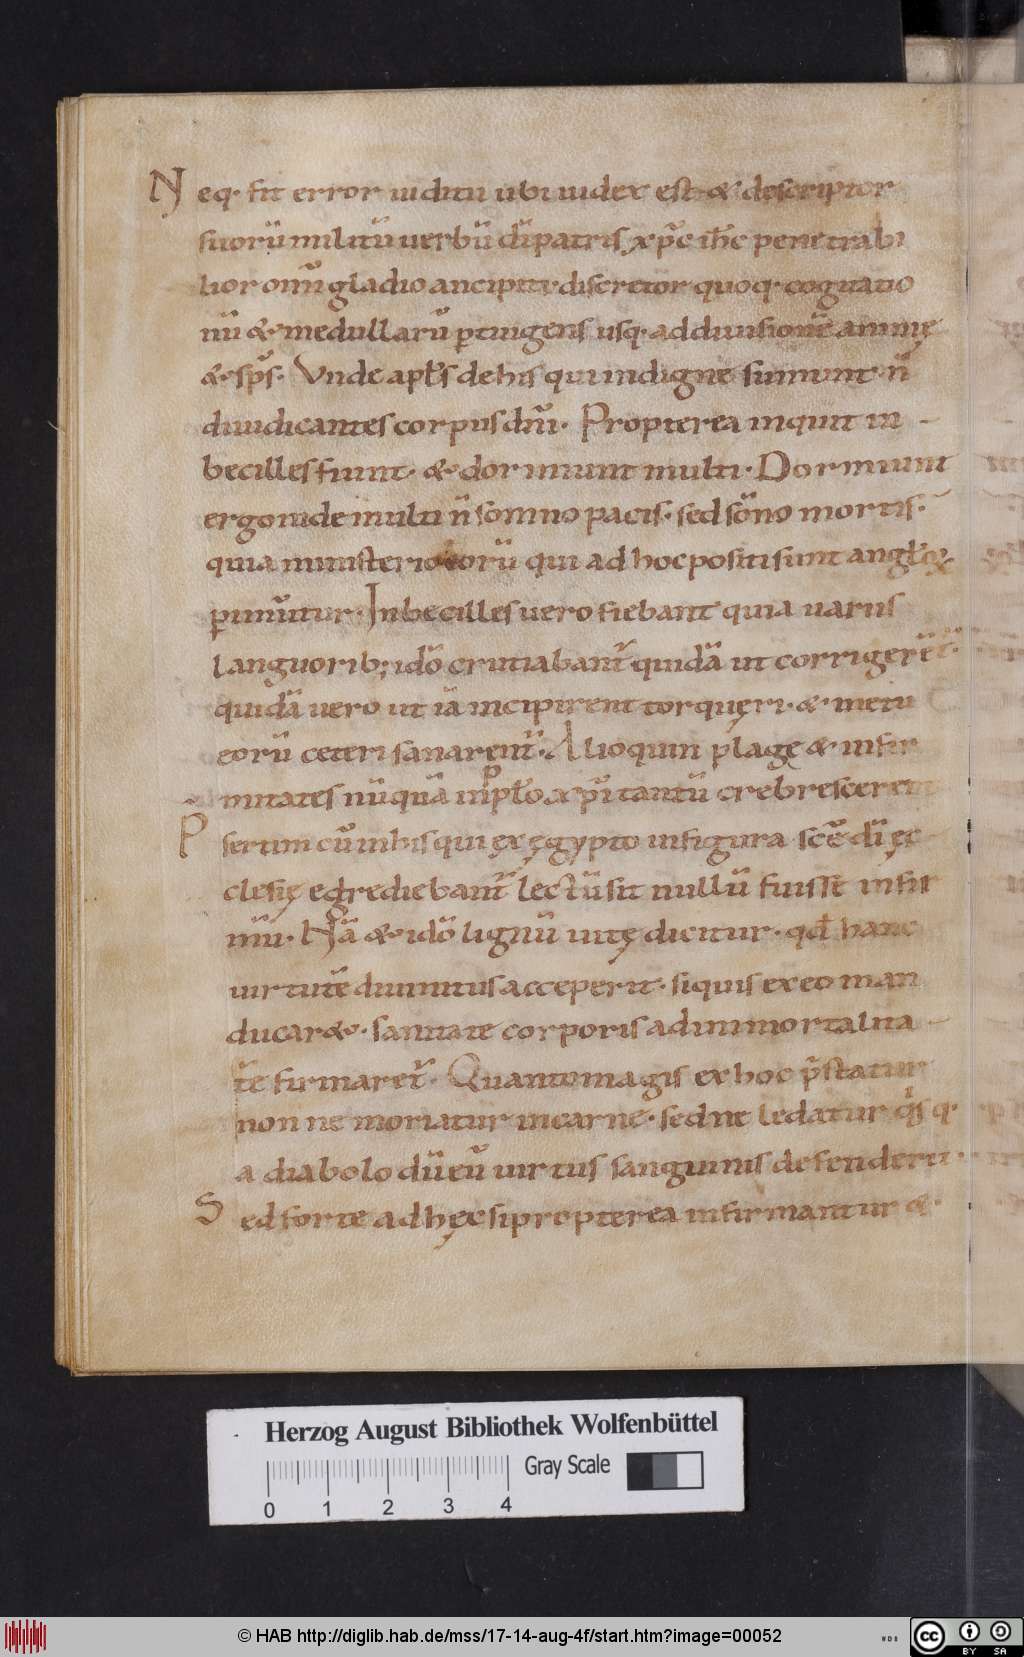 Neq· fit error iuditii ubi iudex est & descriptor
suorū militū uerbū dī patris xp̄c ih̄c penetrabi
lior om̄i gladio ancipiti· discretor quoq· cogitatio
nū & medullarū ptingens usq· ad diuisionē animę
& sp̄s· Vnde apl̄s de his qui indigne sumunt n̄
diiudicantes corpus dn̄i· Propterea inquit in
becilles fiunt· & dormiunt multi· Dormiunt
ergo inde multi n̄ somno pacis· sed sōno mortis·
quia ministerio eorū qui ad hoc positi sunt
pimūtur· Inbecilles uero fiebant quia uariis
languorib; idō cruciabant̄ quidā ut corrigerēt̄·
quidā uero ut iā inciperent torquęri· & metu
eorū ceteri sanarent̄· Alioquin plagę & infir
mitates nūquā in pplo xp̄i tantū crebrescerent
P sertim cū in his qui ex ęgypto in figura scę dī ęc
clesię egrediebant̄ lectū sit nullū fuisse infir
mū· Nā & idō lignū uitę dicitur· qđ hanc
uirtutē diuinitus acceperit· si quis ex eo man
ducar&· sanitate corporis ad inmortalita
tē firmaret̄· Quanto magis ex hoc p̄statur
non ne moriatur in carne· sed ne ledatur q̄s q·
a diabolo dū eū uirtus sanguinis defenderit·
Sed forte ad hęc si propterea infirmantur &·
Herzog August Bibliothek Wolfenbüttel
0 1 2 3 4 Gray Scale
© HAB http://diglib.hab.de/mss/17-14-aug-4f/start.htm?image=00052
WDB
cc BY SA